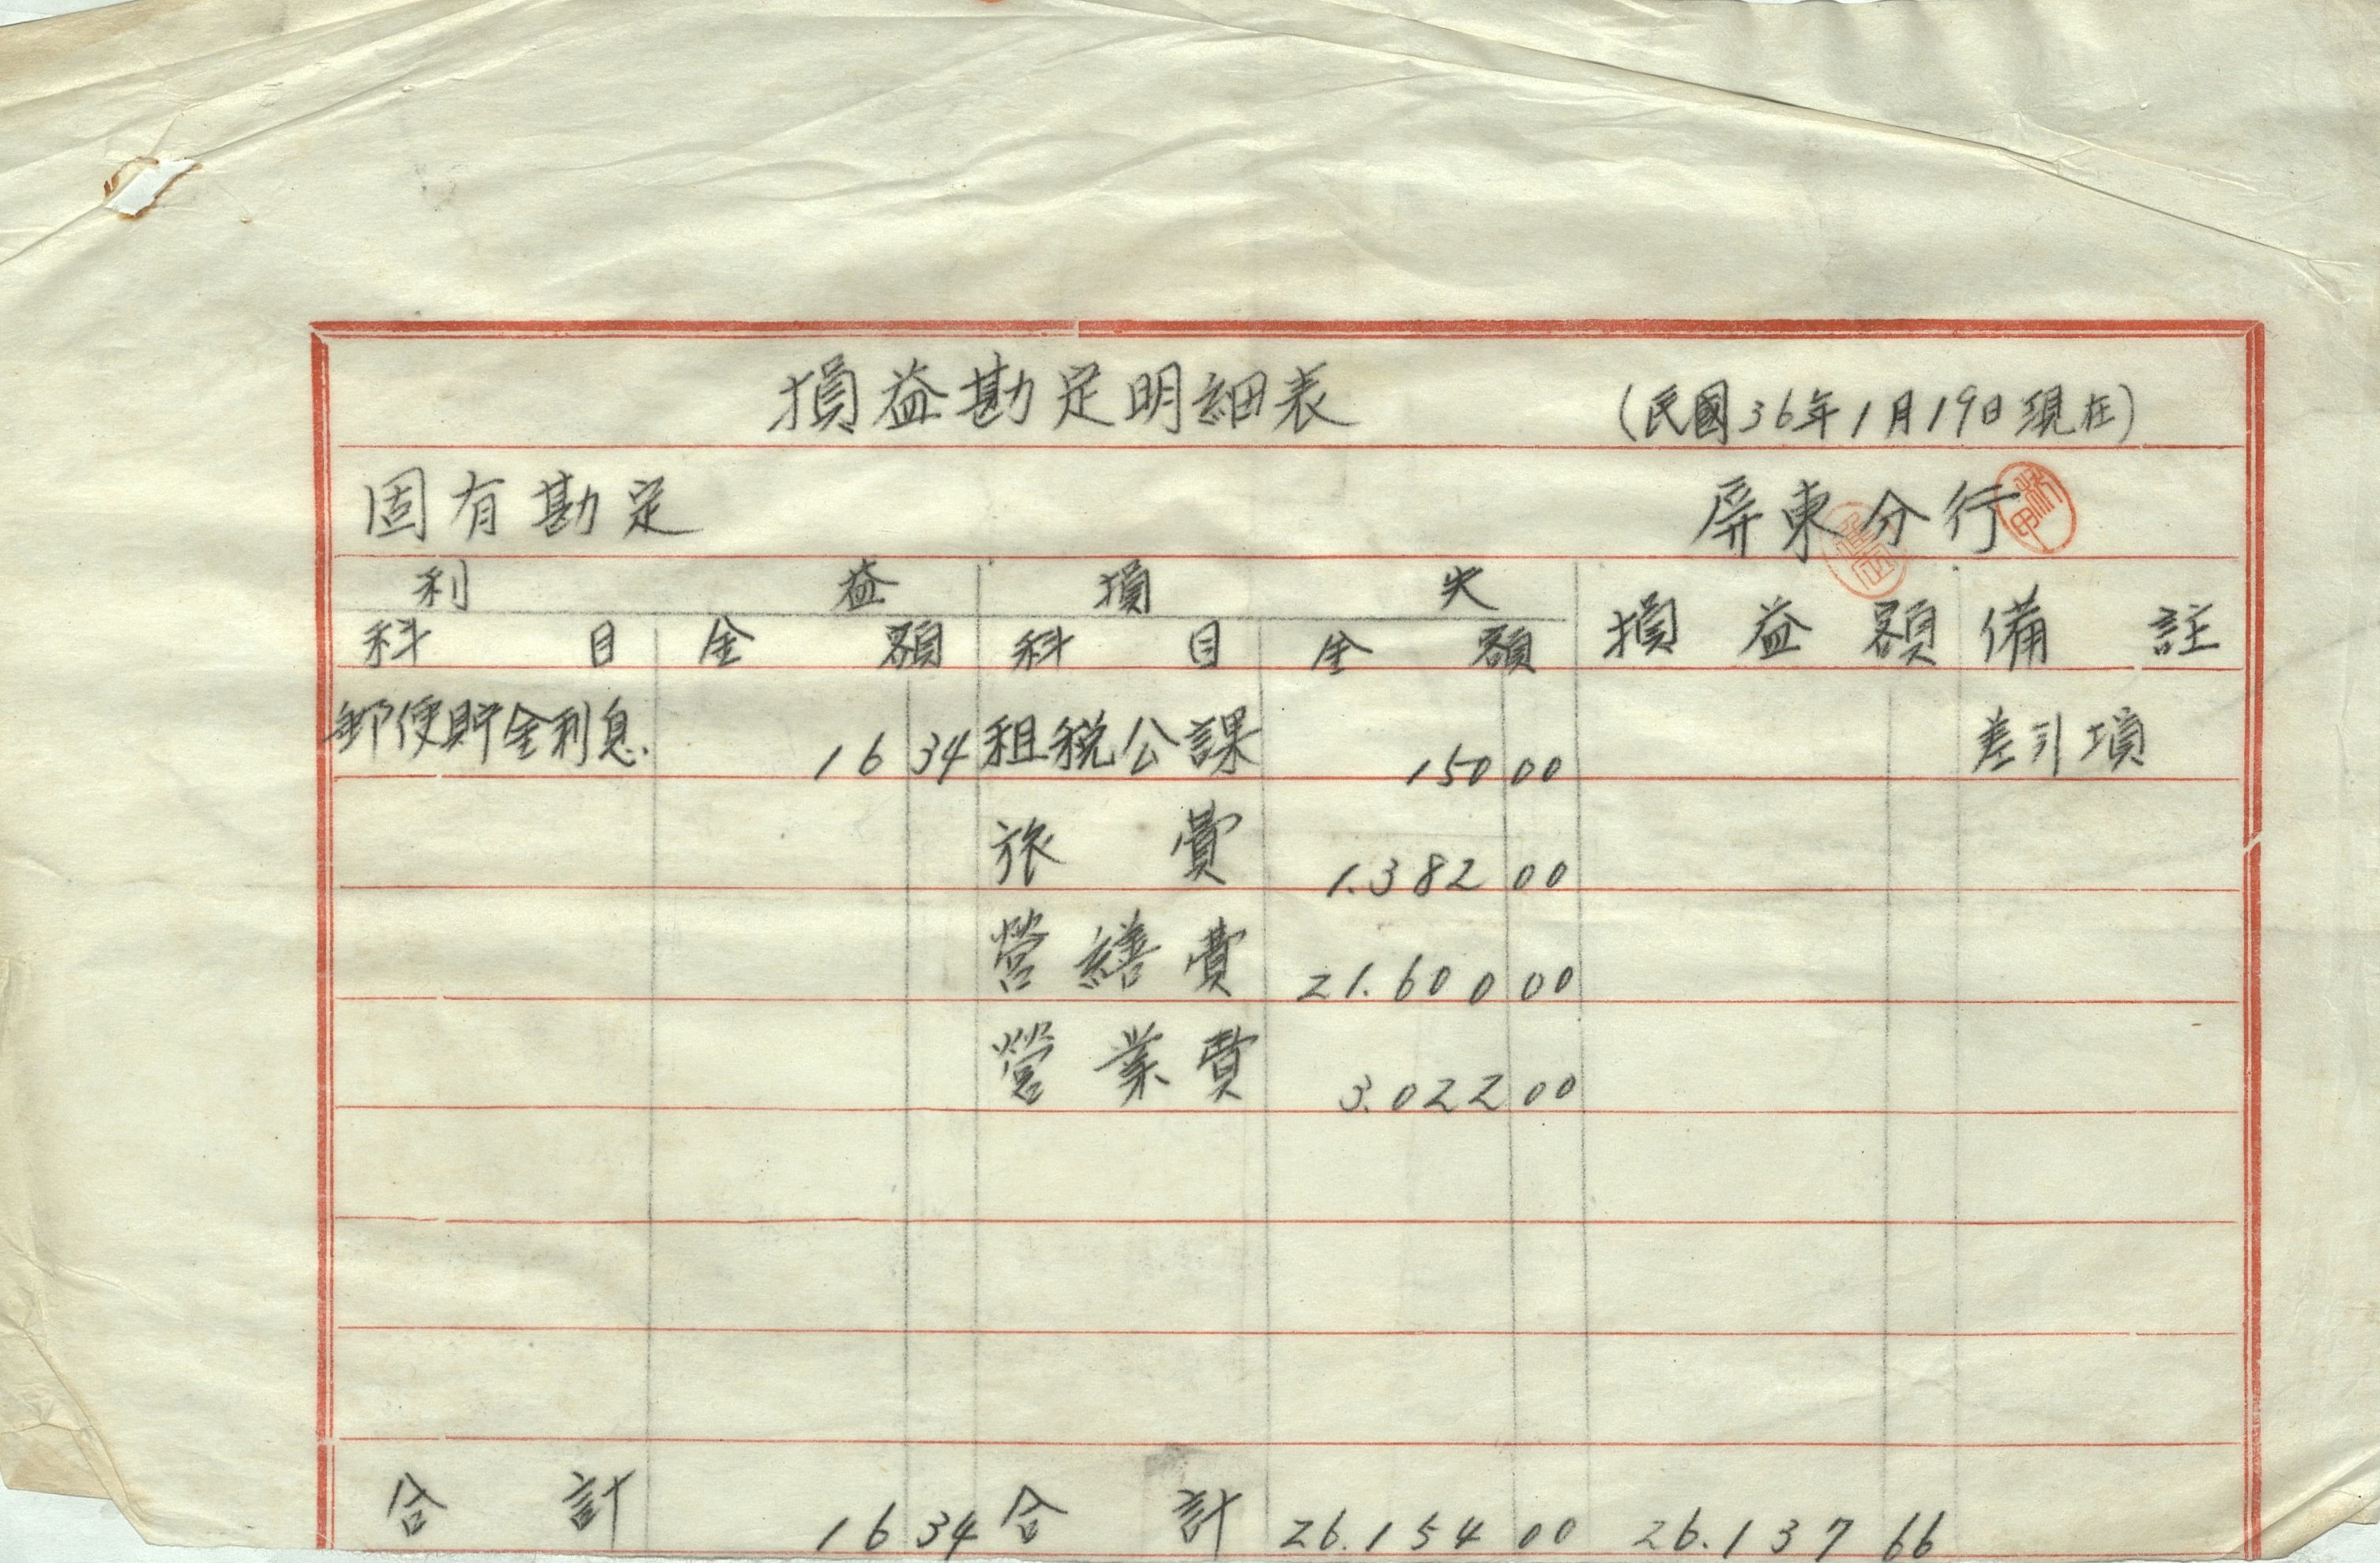 損益勘定明細表 (民國36年1月19日現在)
固有勘定 屏東分行
利 益 損 失
科 目 金 額 科 目 金 額 損 益 額 備 註
郵便貯金利息 16 34 租税公課 150 00 差引損
旅 費 1.382 00
營繕費 21.600 00
營業費 3.022 00
合 計 16 34 合 計 26.154 00 26.137 66